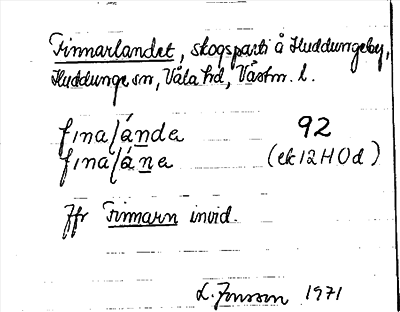 Finnarlandet, skogsparti å Huddungeby,
Huddunge sn, Våla hd, Västm. l.
fìnaláǹde 92
fìnaláǹe (ek 12 H O d)
Jfr Finnarn invid.
L. Jonsson 1971